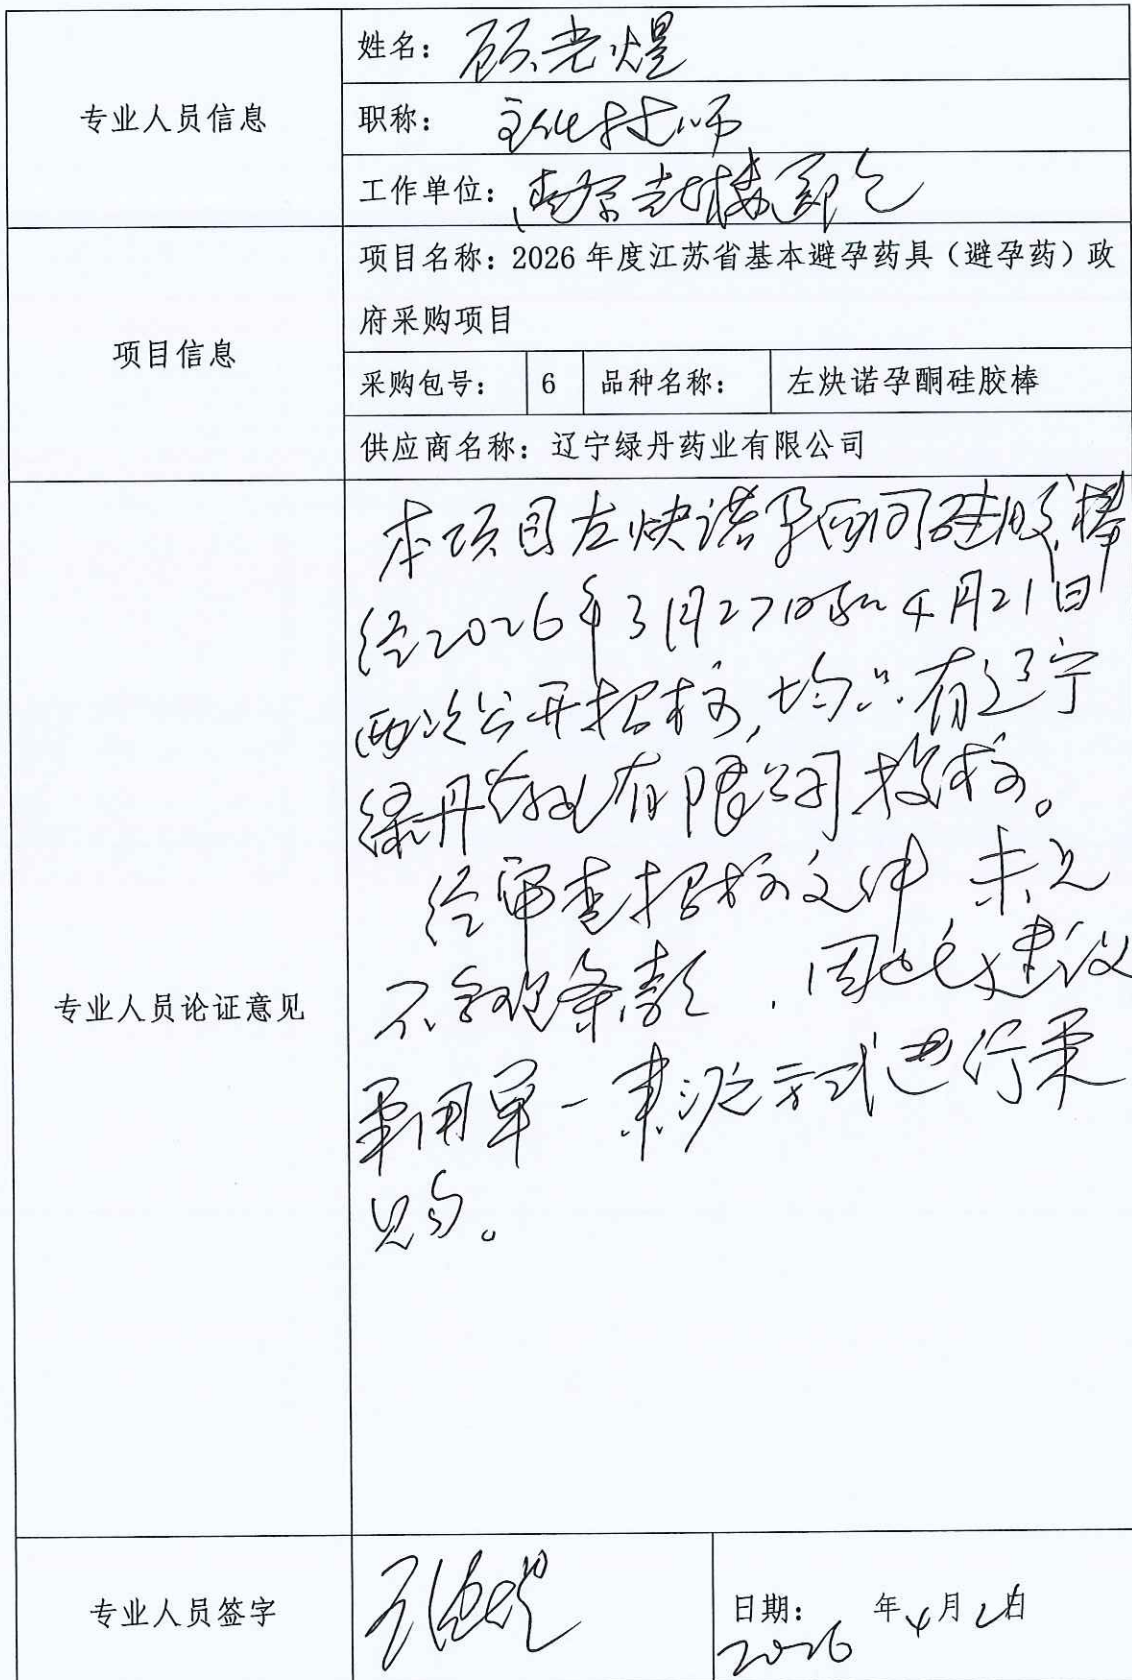 专业人员信息
姓名：顾光煜
职称：主任技师
工作单位：南京鼓楼医院
项目信息
项目名称：2026年度江苏省基本避孕药具（避孕药）政
府采购项目
采购包号： 6 品种名称： 左炔诺孕酮硅胶棒
供应商名称：辽宁绿丹药业有限公司
专业人员论证意见
本项目左炔诺孕酮硅胶棒
经2026年3月27日和4月21日
两次公开招标，均只有辽宁
绿丹药业有限公司投标。
经审查招标文件 未见
不合理条款，因此建议
采用单一来源方式进行采
购。
专业人员签字
顾光煜
日期： 2026年4月 日